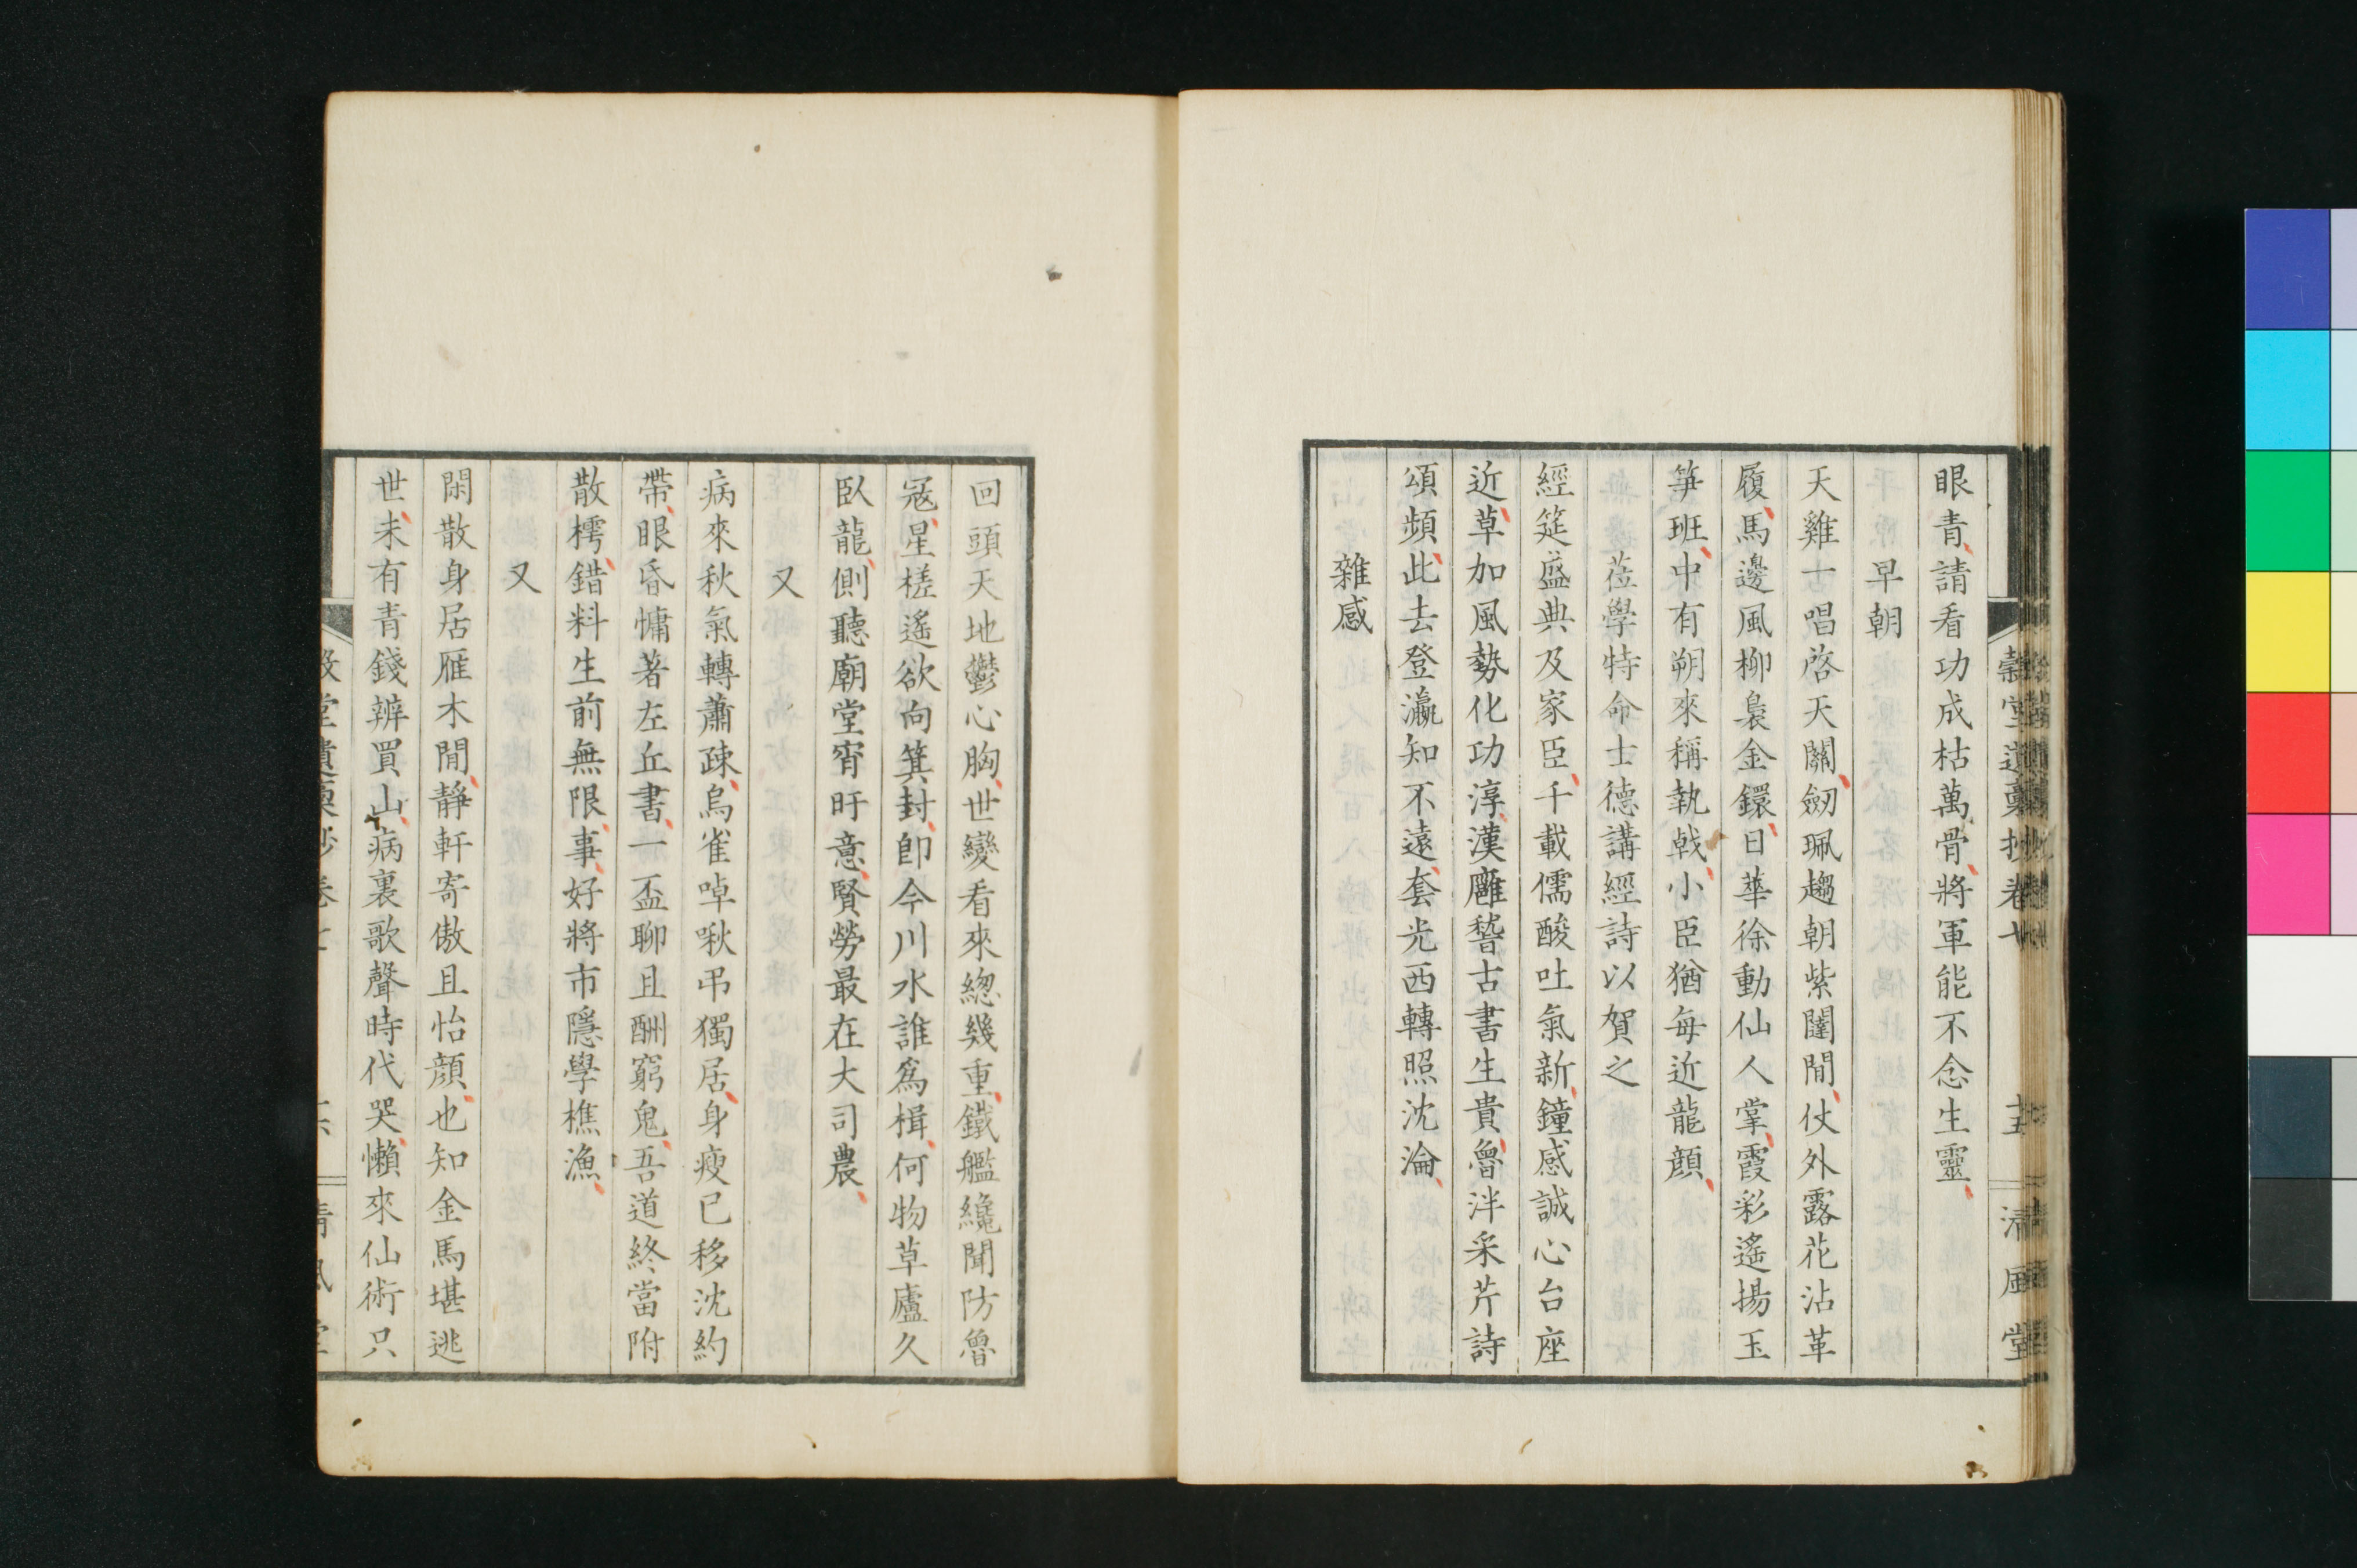 眼青請看功成枯萬骨將軍能不念生靈
早朝
天雞一唱啓天關劒珮趨朝紫闥間仗外露花沾革
履馬邊風柳裊金鐶日華徐動仙人掌霞彩遙揚玉
筝班中有朔來稱執戟小臣猶每近龍顔
蒞學特命士德講經詩以賀之
經筵盛典及家臣千載儒酸吐氣新鐘感誠心台座
近草加風勢化功淳漢廱稽古書生貴魯泮采芹詩
頌頻此去登瀛知不遠套光西轉照沈淪
雜感
回頭天地鬱心胸世變看來緫幾重鐵艦纔聞防魯
冦星槎遙欲向箕封卽今川水誰爲楫何物草廬久
臥龍側聽廟堂宵旰意賢勞最在大司農
又
病來秋氣轉蕭疎烏雀啅啾弔獨居身瘦已移沈約
帶眼昏慵著左丘書一盃聊且酬窮鬼吾道終當附
散樗錯料生前無限事好將市隱學樵漁
又
閑散身居雁木間靜軒寄傲且怡顔也知金馬堪逃
世未有青錢辨買山病裏歌聲時代哭懶來仙術只